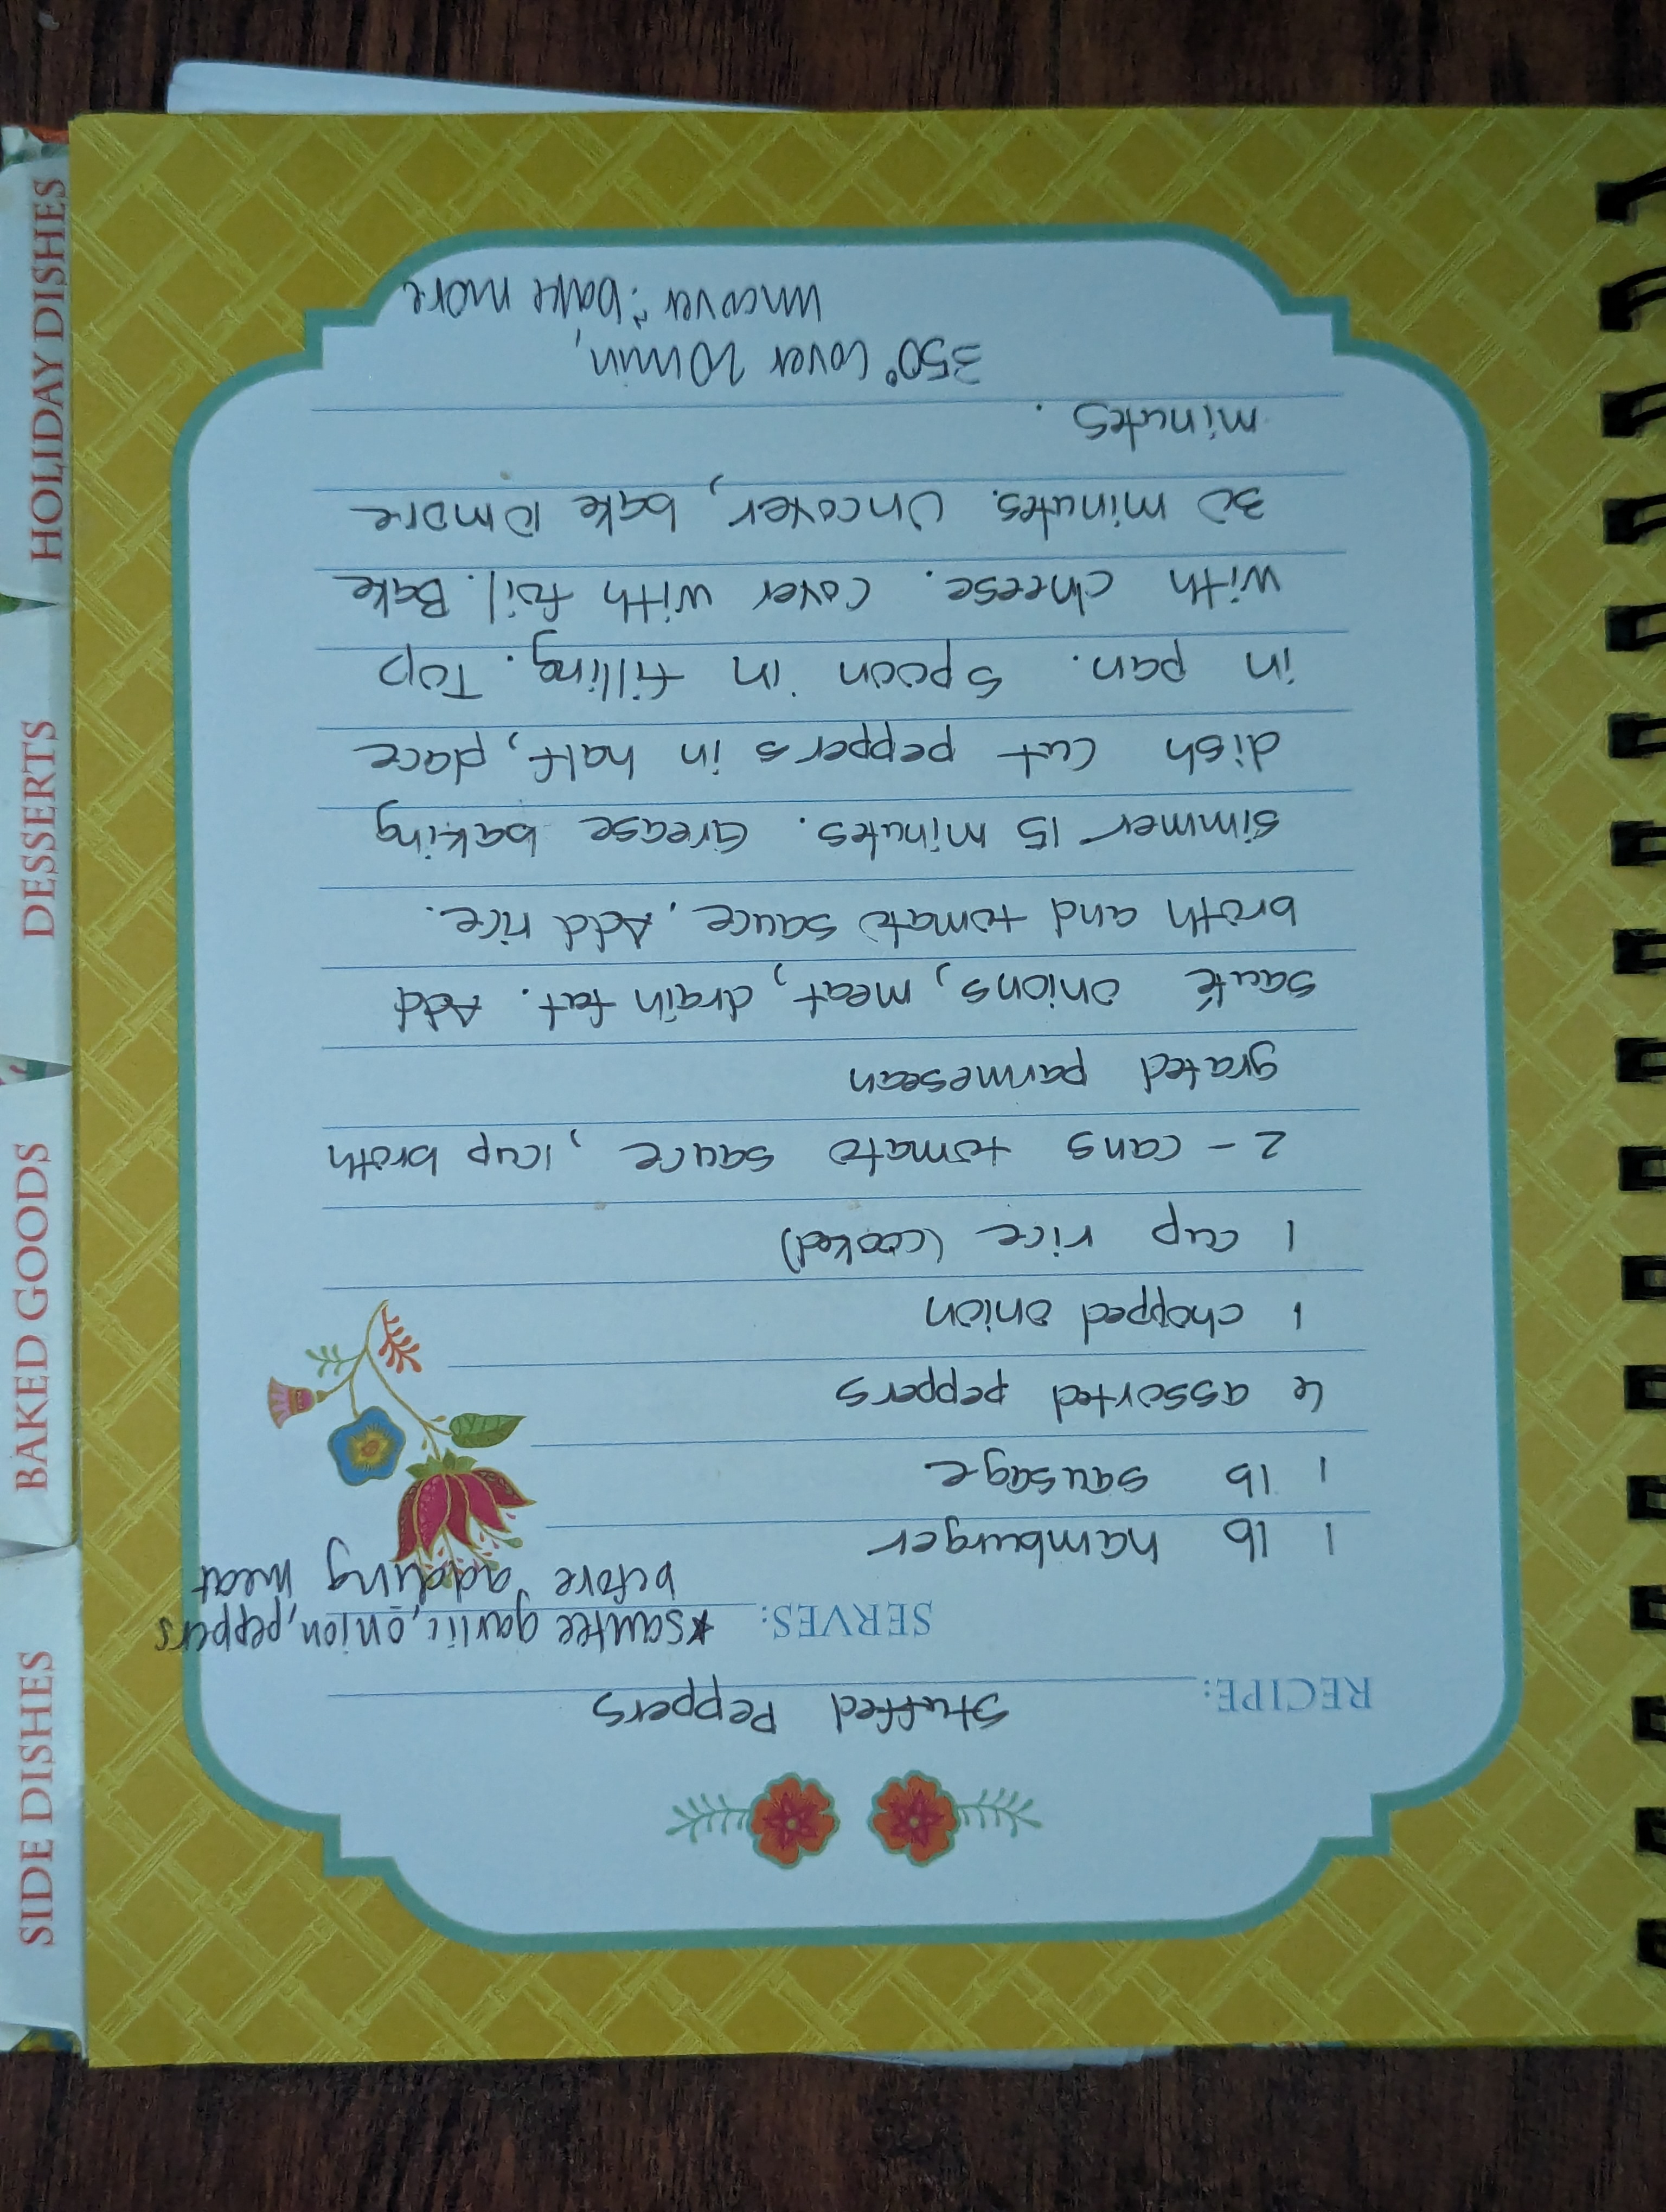 RECIPE: Stuffed Peppers
SERVES: *sautee garlic, onion, peppers
before adding meat
1 lb hamburger
1 lb sausage
6 assorted peppers
1 chopped onion
1 cup rice (cooked)
2 - cans tomato sauce, 1 cup broth
grated parmesean
Sauté onions, meat, drain fat. Add
broth and tomato sauce. Add rice.
Simmer 15 minutes. Grease baking
dish cut peppers in half, place
in pan. Spoon in filling. Top
with cheese. Cover with foil. Bake
30 minutes. Uncover, bake 10 more
minutes.
350° Cover 20 min,
uncover : bake more
SIDE DISHES
BAKED GOODS
DESSERTS
HOLIDAY DISHES